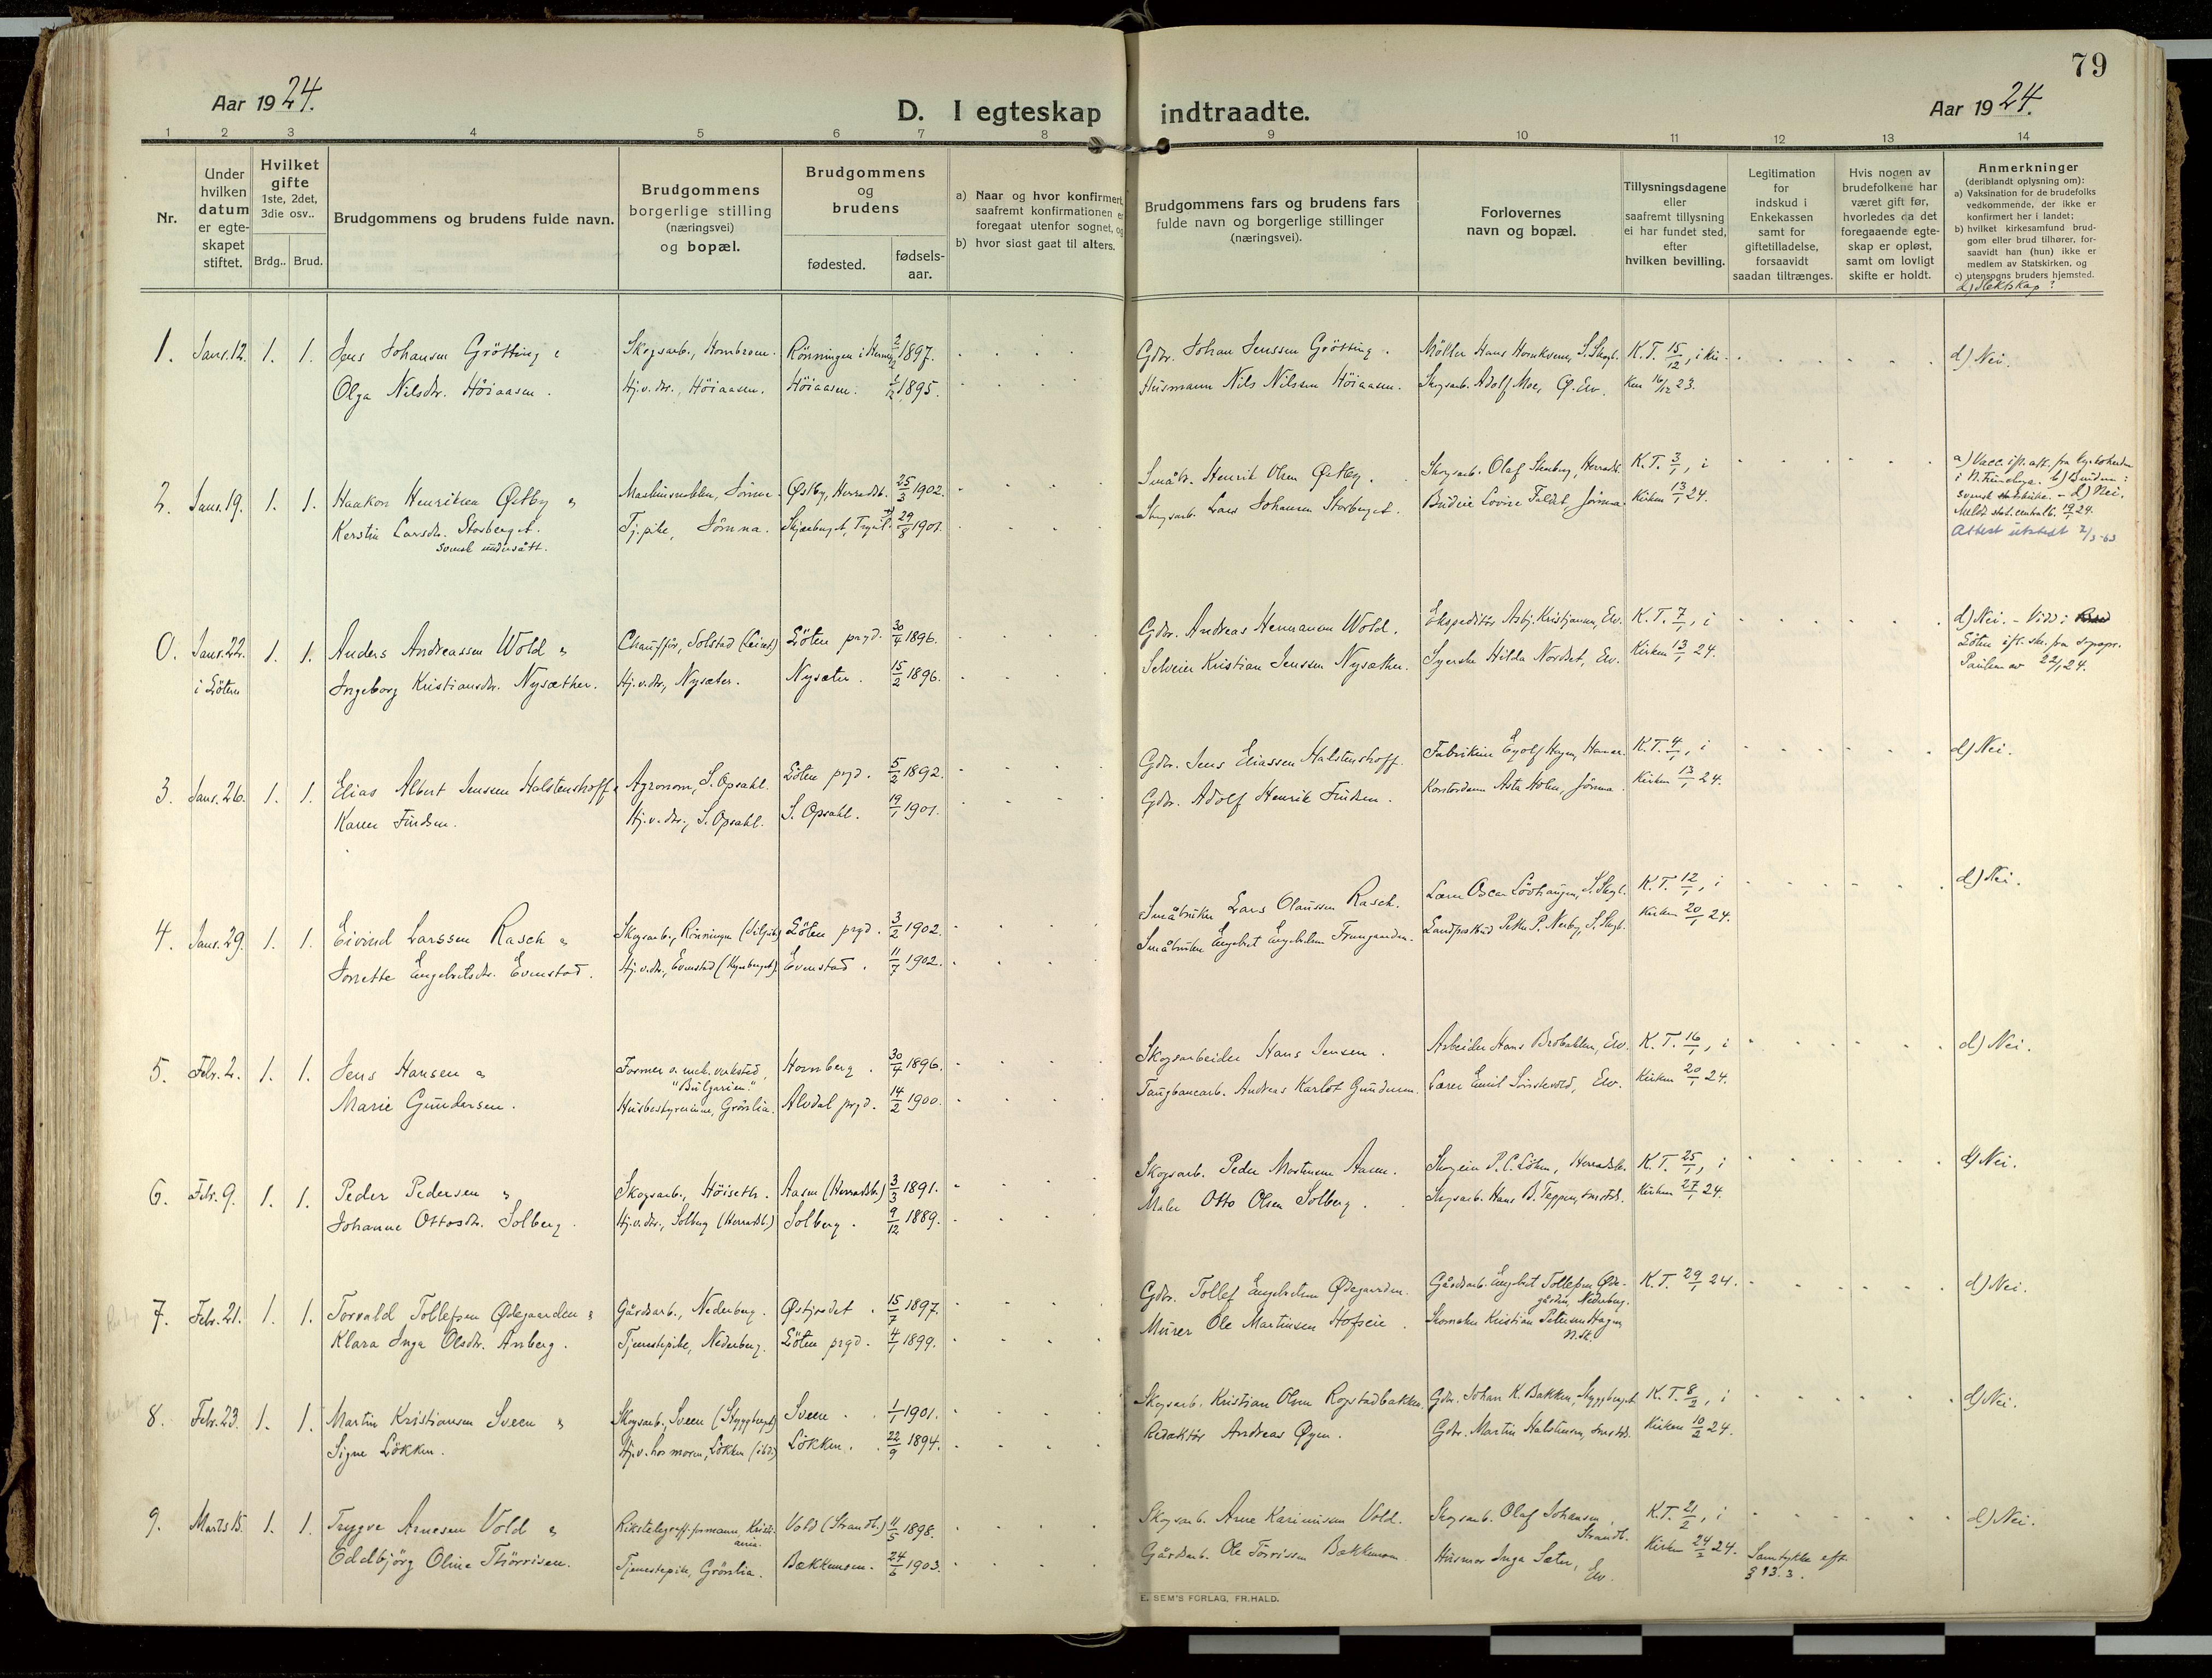 79
Aar 1924.
D. I egteskap indtraadte.
Aar 1924.
1 2 3 4 5 6 7 8 9 10 11 12 13 14
Nr.
Under hvilken datum er egte- skapet stiftet.
Hvilket gifte 1ste, 2det, 3die osv..
Brdg.. Brud.
Brudgommens og brudens fulde navn.
Brudgommens borgerlige stilling (næringsvei) og bopæl.
Brudgommens og brudens
fødested.
fødsels- aar.
a) Naar og hvor konfirmert, saafremt konfirmationen er foregaat utenfor sognet, og
b) hvor sidst gaat til alters.
Brudgommens fars og brudens fars fulde navn og borgerlige stillinger (næringsvei).
Forlovernes navn og bopæl.
Tillysningsdagene eller saafremt tillysning ei har fundet sted, efter hvilken bevilling.
Legitimation for indskud i Enkekassen samt for giftetilladelse, forsaavidt saadan tiltrænges.
Hvis nogen av brudefolkene har været gift før, hvorledes da det foregaaende egte- skap er opløst, samt om lovligt skifte er holdt.
Anmerkninger (deriblandt oplysning om):
a) Vaksination for de brudefolks vedkommende, der ikke er konfirmert her i landet;
b) hvilket kirkesamfund brud- gom eller brud tilhører, for- saavidt han (hun) ikke er medlem av Statskirken, og
c) utensogns bruders hjemsted.
d) slektskap?
1. Janr. 12. 1. 1. Jens Johansen Grötting Skogsarb., Hornbroen. Rönningen i Hernes 2/2 1897. Gdbr. Johan Jenssen Grötting. Möller Hans Hornkvern, S. Skogb. K.T. 15/12, i kir- d) Nei.
Olga Nilsdtr. Höiaasen. Hj.v.dtr., Höiaasen. Höiaasen. 1/12 1895. Husmann Nils Nilssen Höiaasen. Skogsarb. Adolf Moe, Ø. Elv. ken 16/12 23.
2. Janr. 19. 1. 1. Haakon Henriksen Østby Jömna Østby, Herradsb. 25/3 1902. Småbr. Henrik Olsen Østby. Skogsarb. Olaf Stenberg, Herradsb. K.T. 3/1, i
Kerstin Larsdtr. Storberget. Tj.pike, Jömna. Skjærberget, Trysil 29/8 1901. Skogsarb. Lars Johansen Storberget. Budeie Lovise Faldet, Jömna. Kirken 13/1 24.
svensk undersått.
b) Bruden: svensk statskirke. - d) Nei.
Meldt stat. centralb. 19/1 24.
Attest utstedt 2/3-63
0. Janr. 22. 1. 1. Anders Andreassen Wold Chaufför, Solstad (Leiret) Löten prgd. 30/4 1896. Gdbr. Andreas Hermansen Wold. Ekspeditör Asbj. Kristjansen, Elv. K.T. 7/1, i d) Nei. - Viet i
i Löten Ingeborg Kristiansdtr. Nysæther. Hj.v.dtr., Nysæter. Nysæter. 15/2 1896. Selveier Kristian Jenssen Nysæther. Syerske Hilda Nordset, Elv. Kirken 13/1 24. Löten ift. skr. fra sogepr. Paulsen av 22/1 24.
3. Janr. 26. 1. 1. Elias Albert Jenssen Halstenshoff Agronom, S. Opsahl. Löten prgd. 5/2 1892. Gdbr. Jens Eliassen Halstenshoff. Fabrikeier Eyolf Hagen, Hamar. K.T. 4/1, i d) Nei.
Karen Findsen. Hj.v.dtr., S. Opsahl. S. Opsahl. 19/1 1901. Gdbr. Adolf Henrik Findsen. Kontordame Asta Holen, Jömna. Kirken 13/1 24.
4. Janr. 29. 1. 1. Eivind Larssen Rasch Skogsarb., Rönningen Löten prgd. 3/2 1902. Småbruker Lars Olaussen Rasch. Lærer Oscar Lövhaugen, S. Skogb. K.T. 12/1, i d) Nei.
Jonette Engebretsdtr. Evenstad. Hj.v.dtr., Evenstad (Kynberget). Evenstad. 11/7 1902. Småbruker Engebret Engebretsen Frengaarden. Landpostbud Petter P. Nerby, S. Skogb. Kirken 20/1 24.
5. Febr. 2. 1. 1. Jens Hansen Former v. mek. verksted, Hornberg. 30/7 1896. Skogsarbeider Hans Jensen. Arbeider Hans Brobakken, Elv. K.T. 16/1, i d) Nei.
"Bulgarien"
Marie Gundersen. Husbestyrerinne, Grönlia. Alvdal prgd. 14/2 1900. Taugbanearb. Andreas Karlot Gundersen. Lærer Emil Sönstevold, Elv. Kirken 20/1 24.
6. Febr. 9. 1. 1. Peder Pedersen Skogsarb., Höiseth. Aasen (Herradsb.) 3/3 1891. Skogsarb. Peder Mortensen Aasen. Skogeier P.C. Löken, Herradsb. K.T. 25/1, i d) Nei.
Johanne Ottosdtr. Solberg. Hj.v.dtr., Solberg (Herradsb.) Solberg. 9/12 1889. Maler Otto Olsen Solberg. Skogsarb. Hans B. Teppen, smstds. Kirken 27/1 24.
7. Febr. 21. 1. 1. Torvald Tollefsen Ødegaarden Gårdsarb., Nederberg. Østjordet. 15/7 1897. Gdbr. Tollef Engebretsen Ødegaarden. Gårdsarb. Engebret Tollefsen Øde- K.T. 29/1 24. d) Nei.
gården, Nederberg.
Klara Inga Olsdtr. Anberg. Tjenestepike, Nederberg. Löten prgd. 4/1 1899. Murer Ole Martinsen Hofseie. Skomaker Kristian Petersen Hagen,
N.Sk.
8. Febr. 23. 1. 1. Martin Kristiansen Sveen Skogsarb., Sveen (Skyggberget) Sveen. 1/1 1901. Skogsarb. Kristian Olsen Rogstadbakken. Gdbr. Johan K. Bakken, Skyggberget. K.T. 8/2, i d) Nei.
Signe Lökken. Hj.v. hos moren, Lökken (ibid) Lökken. 22/9 1894. Redaktör Andreas Øyen. Gdbr. Martin Halstensen, smstds. Kirken 10/2 24.
9. Marts 15. 1. 1. Trygve Arnesen Vold Rikstelegraff. formann, Kristi- Vold (Strandb.) 11/5 1898. Skogsarb. Arne Karinusen Vold. Skogsarb. Olaf Johansen, K.T. 21/2, i d) Nei.
ania. Strandb.
Edelbjörg Oline Thörrisen. Tjenestepike, Grönlia. Bækkemoen. 24/6 1903. Gårdsarb. Ole Törrissen Bækkemoen. Husmor Inga Sæter, Elv. Kirken 24/2 24. Samtykke eft. § 13.3.
E. SEM'S FORLAG, FR.HALD.